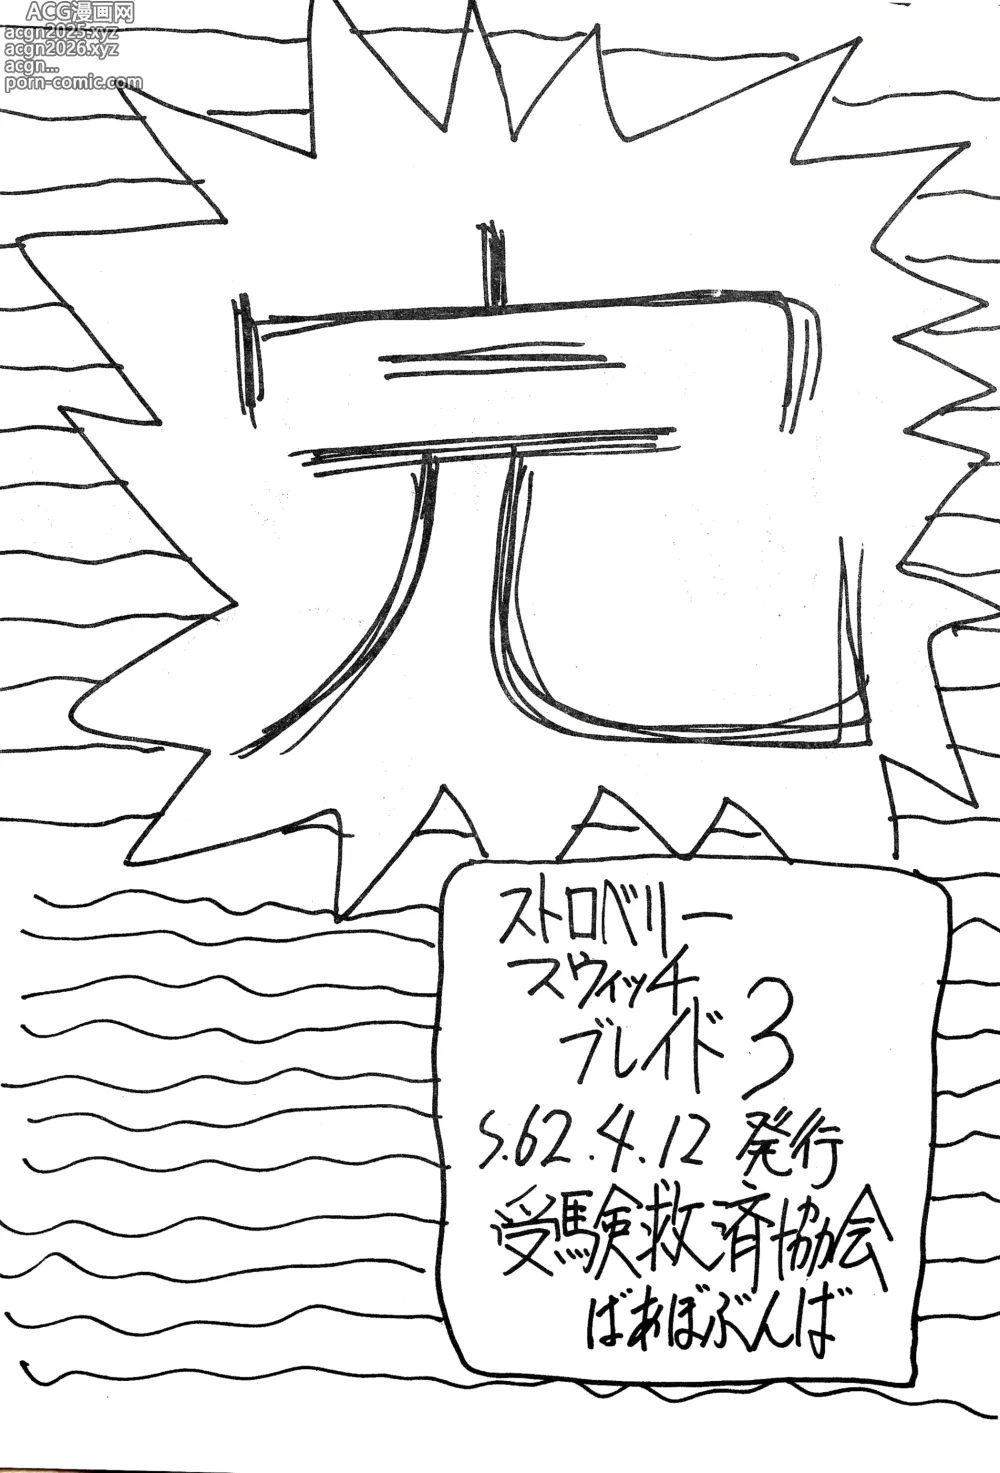 ACG漫画网
acgn2025.xyz
acgn2026.xyz
acgn...
porn-comic.com
完
ストロベリー
スウィッチ
ブレイド3
S.62.4.12 発行
受験救済協会
ばあぼぶんば